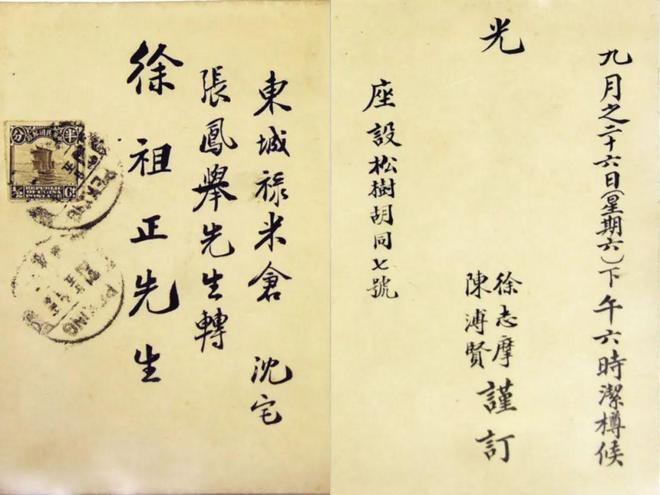 東城祿米倉 沈宅
張鳳舉先生轉
徐祖正先生
半分
REPUBLIC
OF CHINA
PEKING
PEKING
九月之二十六日(星期六)下午六時潔樽候
光
徐志摩
陳溥賢 謹訂
座設松樹胡同七號